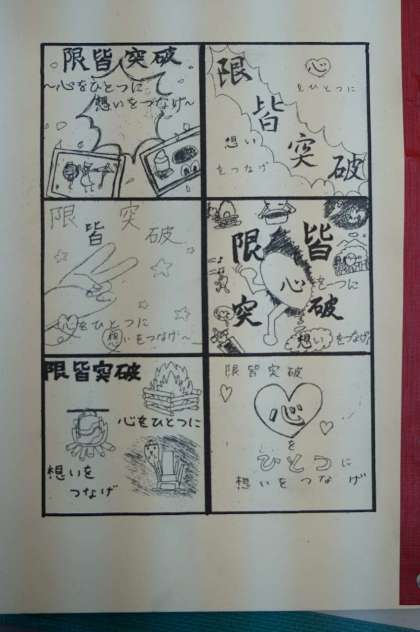 限皆突破
～心をひとつに
想いをつなげ～
限皆突破
心をひとつに
想い
をつなげ
限皆突破
心をひとつに
想いをつなげ～
限皆突破
心をひとつに
想いをつなげ
限皆突破
心をひとつに
想いを
つなげ
限皆突破
心
を
ひとつに
想いをつなげ